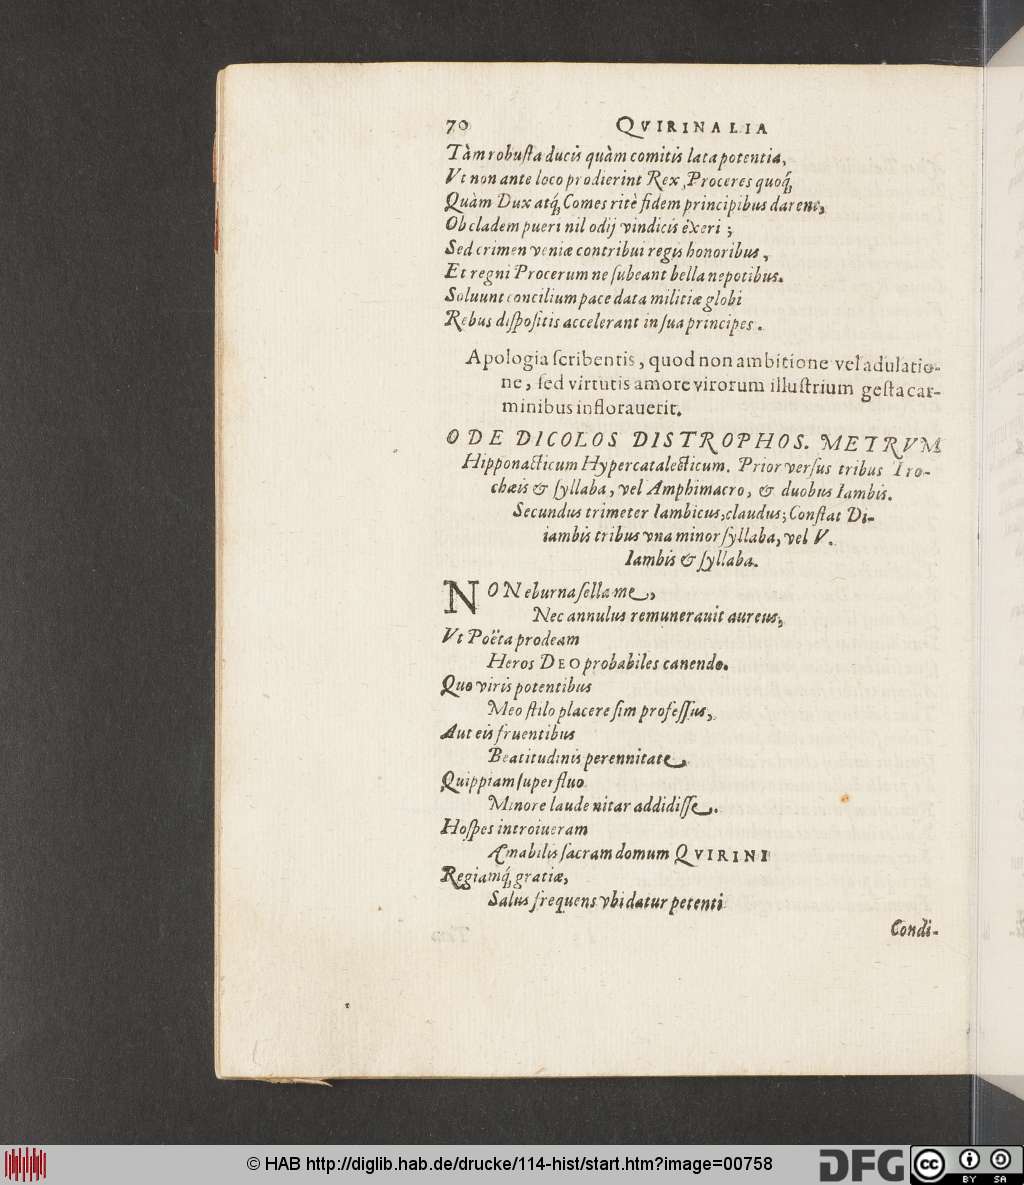 70 QVIRINALIA
Tàm robuſta ducis quàm comitis lata potentia,
Vt non ante loco prodierint Rex, Proceres quoq́;
Quàm Dux atq́; Comes ritè fidem principibus darent,
Ob cladem pueri nil odij vindicis exeri ;
Sed crimen veniæ contribui regis honoribus,
Et regni Procerum ne ſubeant bella nepotibus.
Soluunt concilium pace data militiæ globi
Rebus diſpoſitis accelerant in ſua principes.
Apologia ſcribentis, quod non ambitione vel adulatio-
ne, ſed virtutis amore virorum illuſtrium geſta car-
minibus inflorauerit.
ODE DICOLOS DISTROPHOS. METRVM
Hipponacticum Hypercatalecticum. Prior verſus tribus Tro-
chæis & ſyllaba, vel Amphimacro, & duobus Iambis.
Secundus trimeter Iambicus, claudus; Conſtat Di-
iambis tribus vna minor ſyllaba, vel V.
Iambis & ſyllaba.
NON eburna ſella me,
Nec annulus remunerauit aureus,
Vt Poëta prodeam
Heros DEO probabiles canendo.
Quo viris potentibus
Meo ſtilo placere ſim profeſſus,
Aut eis fruentibus
Beatitudinis perennitate,
Quippiam ſuperfluo
Minore laude nitar addidiſſe.
Hoſpes introiueram
Amabilis ſacram domum QVIRINI
Regiamq́; gratiæ,
Salus frequens vbi datur petenti
Condi-
© HAB http://diglib.hab.de/drucke/114-hist/start.htm?image=00758
DFG
cc
BY SA